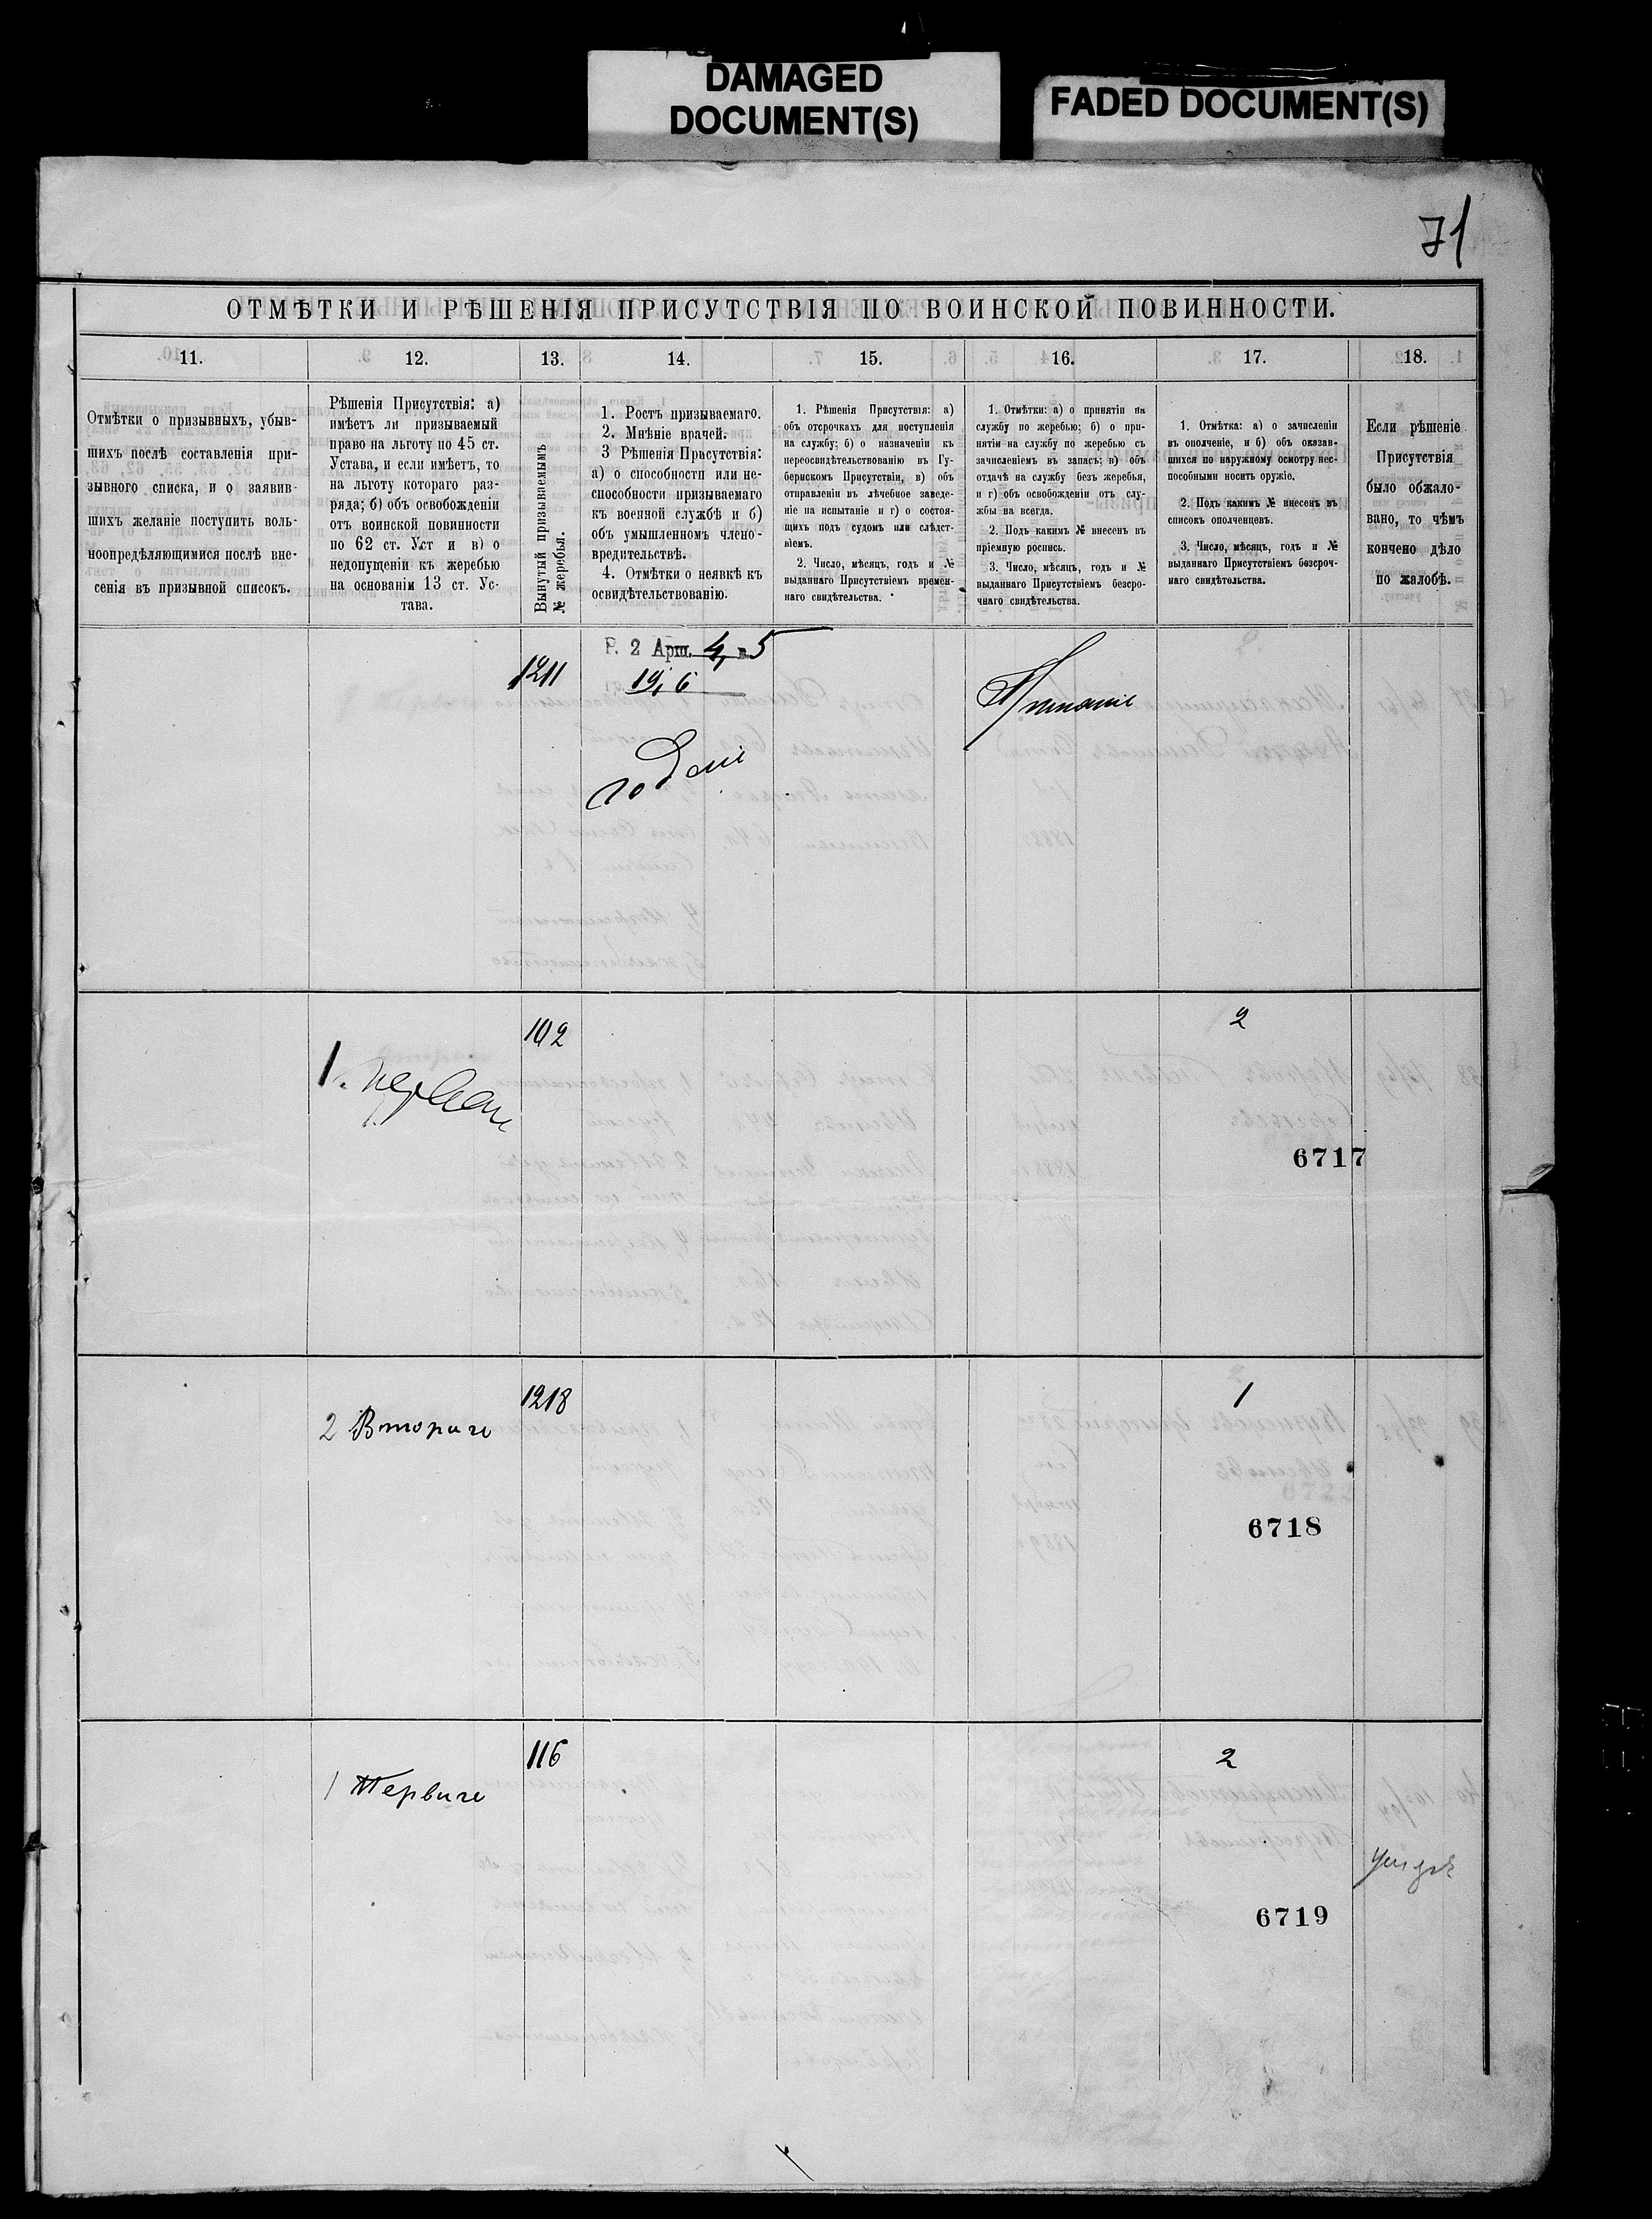 DAMAGED
DOCUMENT(S)
FADED DOCUMENT(S)
71
ОТМѢТКИ И РѢШЕНІЯ ПРИСУТСТВІЯ ПО ВОИНСКОЙ ПОВИННОСТИ.
11.
12.
13.
14.
15.
16.
17.
18.
Отмѣтки о призывныхъ, убыв-
шихъ послѣ составленія при-
зывного списка, и о заявив-
шихъ желаніе поступить воль-
ноопредѣляющимися послѣ вне-
сенія въ призывной списокъ.
Рѣшенія Присутствія: а)
имѣетъ ли призываемый
право на льготу по 45 ст.
Устава, и если имѣетъ, то
на льготу котораго раз-
ряда; б) объ освобожденіи
отъ воинской повинности
по 62 ст. Уст и в) о
недопущеніи къ жеребью
на основаніи 13 ст. Ус-
тава.
Вынутый призываемымъ
№ жеребья.
1. Ростъ призываемаго.
2. Мнѣніе врачей.
3 Рѣшенія Присутствія:
а) о способности или не-
способности призываемаго
къ военной службѣ и б)
объ умышленномъ члено-
вредительствѣ.
4. Отмѣтки о неявкѣ къ
освидѣтельствованію.
1. Рѣшенія Присутствія: а)
объ отсрочкахъ для поступленія
на службу; б) о назначеніи къ
переосвидѣтельствованію въ Гу-
бернскомъ Присутствіи, в) объ
отправленіи въ лѣчебное заведе-
ніе на испытаніе и г) о состоя-
щихъ подъ судомъ или слѣдст-
віемъ.
2. Число, мѣсяцъ, годъ и №
выданнаго Присутствіемъ времен-
наго свидѣтельства.
1. Отмѣтки: а) о принятіи на
службу по жеребью; б) о при-
нятіи на службу по жеребью съ
зачисленіемъ въ запасъ; в) объ
отдачѣ на службу безъ жеребья,
и г) объ освобожденіи отъ слу-
жбы на всегда.
2. Подъ какимъ № внесенъ въ
пріемную роспись.
3. Число, мѣсяцъ, годъ и №
выданнаго Присутствіемъ безсро-
чнаго свидѣтельства.
1. Отмѣтка: а) о зачисленіи
въ ополченіе, и б) объ оказав-
шихся по наружному осмотру нес-
пособными носить оружіе.
2. Подъ какимъ № внесенъ въ
списокъ ополченцевъ.
3. Число, мѣсяцъ, годъ и №
выданнаго Присутствіемъ безсроч-
наго свидѣтельства.
Если рѣшеніе
Присутствія
было обжало-
вано, то чѣмъ
кончено дѣло
по жалобѣ.
1211
Р. 2 Арш. 4, в 5
19, 6
102
2
6717
1218
2
1
6718
116
1
2
6719